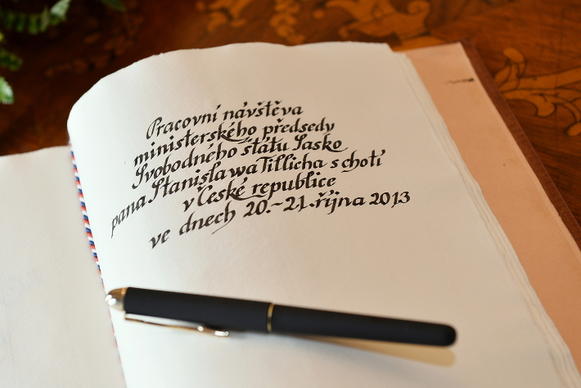 Pracovní návštěva
ministerského předsedy
Svobodného státu Sasko
pana Stanislawa Tillicha s chotí
v České republice
ve dnech 20.-21. října 2013